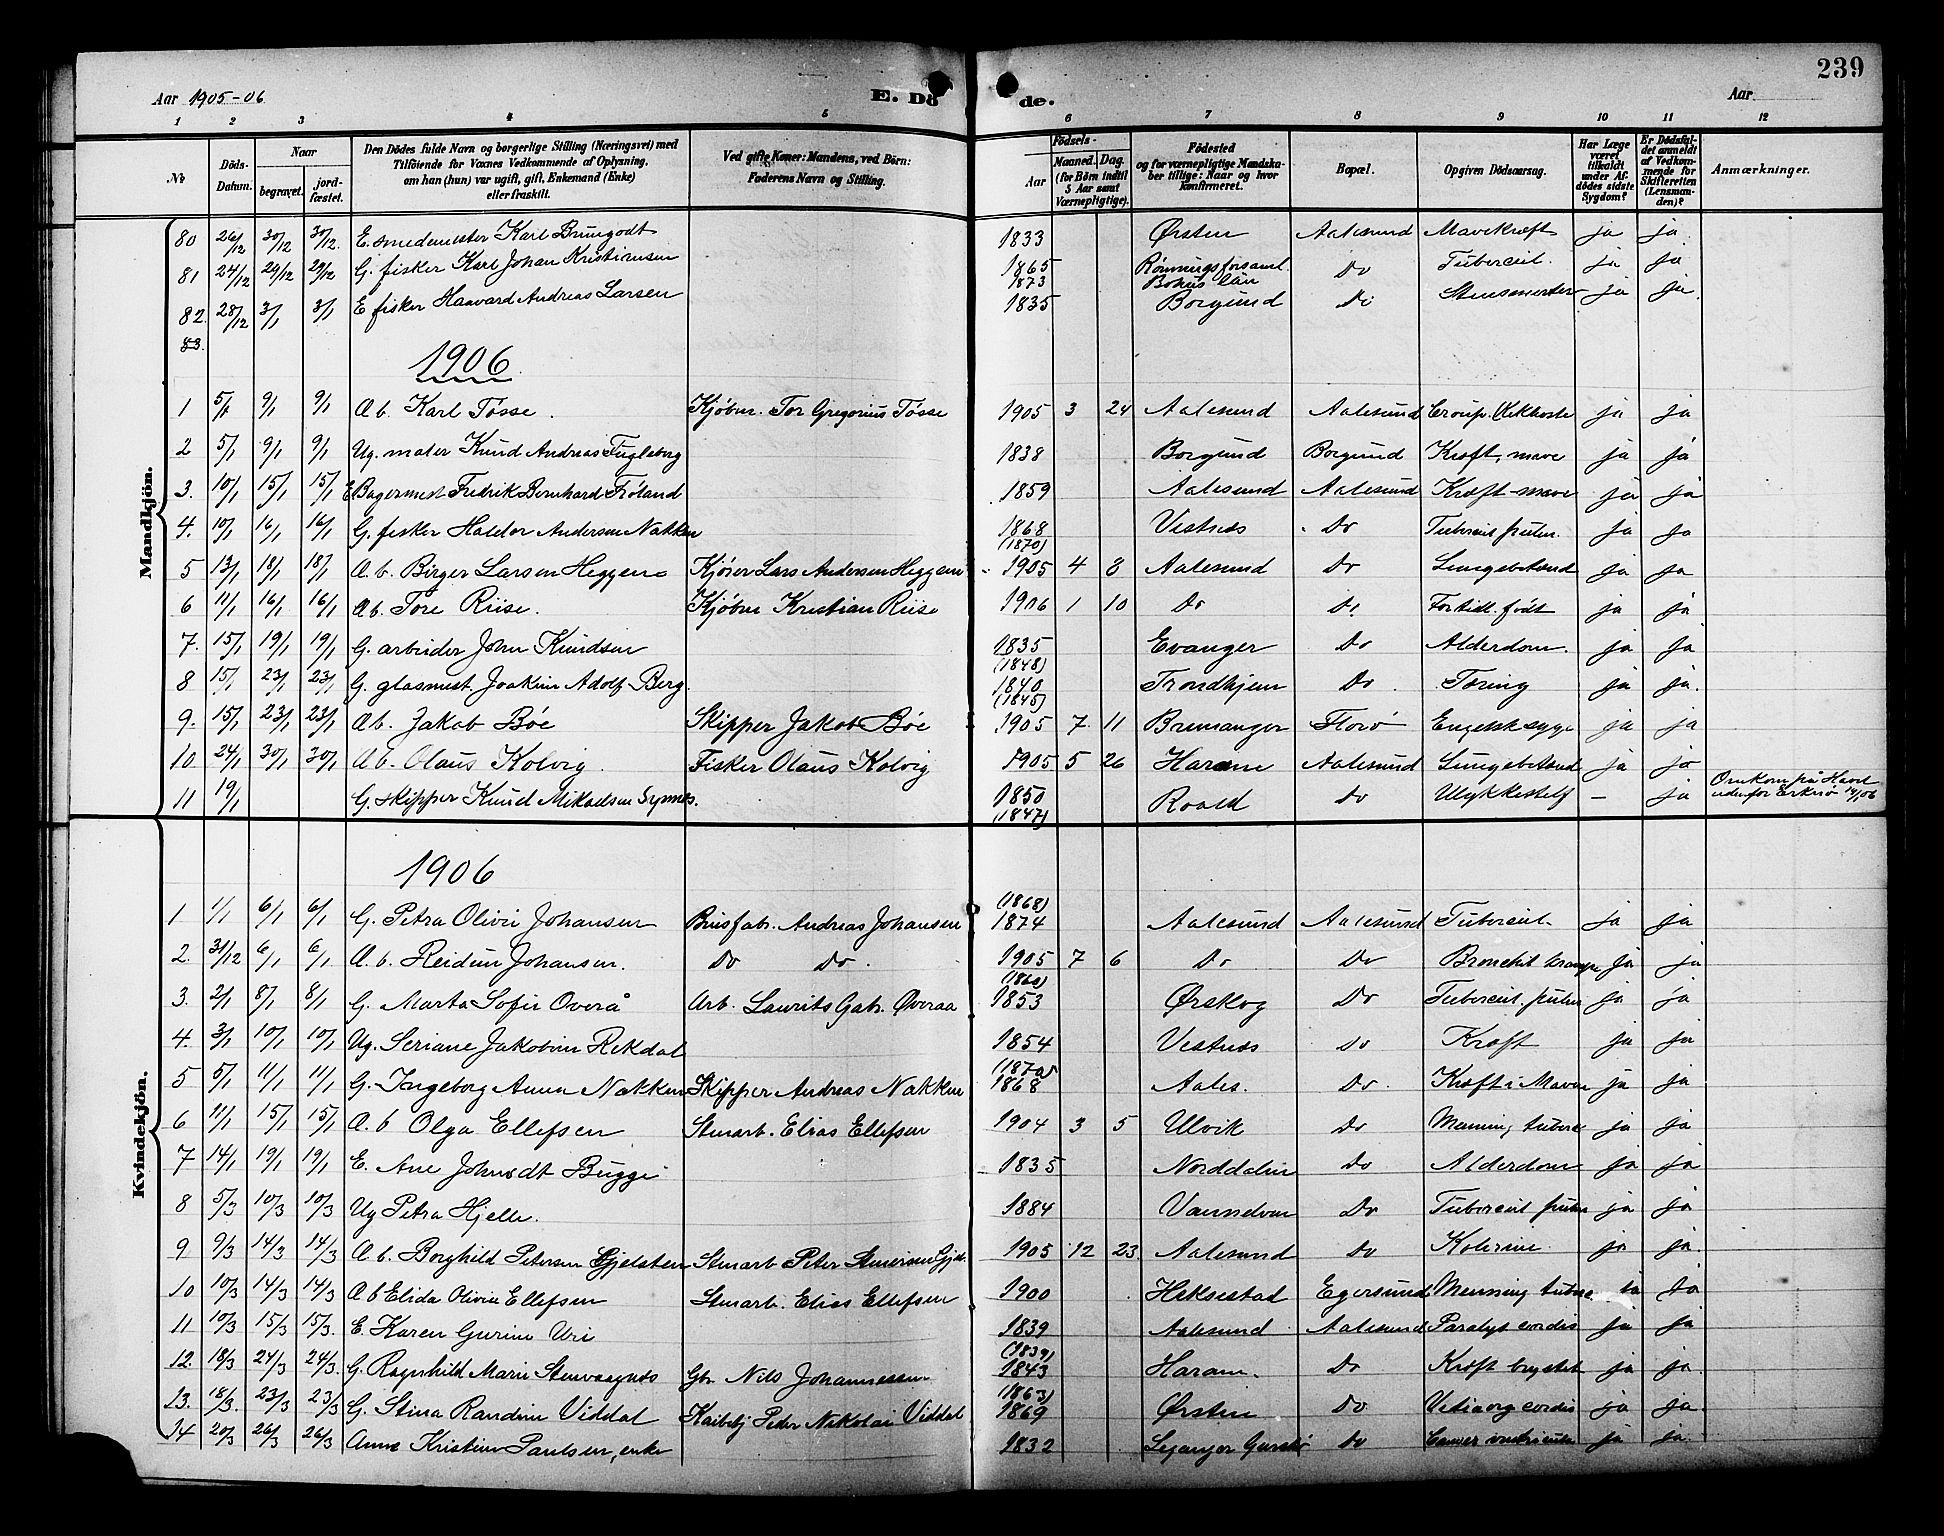 239
Aar 1905-06 E. Dö de. Aar
1 2 3 4 5 6 7 8 9 10 11 12
No Döds-Datum. Naar begravet. jord-fæstet. Den Dödes fulde Navn og borgerlige Stilling (Næringsvei) med Tilföiende for Voxnes Vedkommende af Oplysning, om han (hun) var ugift, gift, Enkemand (Enke) eller fraskilt. Ved gifte Koner: Mandens, ved Börn: Faderens Navn og Stilling. Födsels- Aar Maaned. Dag. (for Börn indtil 5 Aar samt Værnepligtige). Födested og for værnepligtige Mandska-ber tillige: Naar og hvor konfirmeret. Bopæl. Opgiven Dödsaarsag. Har Læge været tilkaldt under Af-dödes sidste Sygdom? Er Dödsfal-det anmeldt af Vedkom-mende for Skifteretten (Lensman-den)? Anmærkninger.
Mandkjön.
80 26/12 30/12 30/12 E. smedemester Karl Brungodt 1833 Ørsten Aalesund Mavekræft ja ja
81 24/12 29/12 29/12 G. fisker Karl Johan Kristiansen 1865 1873 Rønnings forsaml. Bohus län Do Tubercul. ja ja
82 28/12 3/1 3/1 E fisker Haavard Andreas Larsen 1835 Borgund Do ja ja
83.
1906
1 5/1 9/1 9/1 A b. Karl Tøsse. Kjøbm. Tor Gregorius Tøsse 1905 3 24 Aalesund Aalesund Croup. Kikhoste ja ja
2 5/1 9/1 9/1 Ug. maler Knud Andreas Fugleberg 1838 Borgund Borgund Kræft, mave ja ja
3. 10/1 15/1 15/1 E Bagermest Fredrik Bernhard Frøland 1859 Aalesund Aalesund Kræft mave ja ja
4. 10/1 16/1 16/1 G. fisker Haldor Andersen Nakken 1868 (1870) Vestnes Do Tubercul pulm. ja ja
5 13/1 18/1 18/1 A. b. Birger Larsen Heggem Kjører Lars Andersen Heggem 1905 4 8 Aalesund Do Lungebetænd ja ja
6 11/1 16/1 16/1 A b. Tore Riise. Kjøbm Kristian Riise 1906 1 10 Do Do For tidl. født ja ja
7. 15/1 19/1 19/1 G. arbeider John Knudsen 1835 (1848) Evanger Do Alderdom. ja ja
8 15/1 23/1 23/1 G. glasmest. Joakim Adolf Berg 1840 (1845) Trondhjem Do Tæring ja ja.
9. 15/1 23/1 23/1 A b. Jakob Bøe Skipper Jakob Bøe 1905 7 11 Bremanger Florø Engelsk syge ja ja
10 24/1 30/1 30/1 A b. Olaus Kolvig. Fisker Olaus Kolvig 1905 5 26 Haram Aalesund Lungebetænd ja ja
11 19/1 G. skipper Knud Mikaelsen Synnes. 1850 (1847) Roald Do Ulykkestilf — ja Omkom paa Havet udenfor Erknø 19/1 06
Kvindekjön.
1906
1 1/1 6/1 6/1 G. Petra Olivie Johansen Brusfabr. Andreas Johansen (1868) 1874 Aalesund Aalesund Tubercul. ja ja
2. 31/12 6/1 6/1 A. b. Reidun Johansen. Do Do. 1905 7 6 Do Do Bronchit krampe ja ja
3. 2/1 8/1 8/1 G. Marta Sofie Overå Arb. Laurits Gabr. Øveraa (1860) 1853 Ørskog Do Tubercul. pulm ja ja
4. 3/1 10/1 10/1 Ug. Seriane Jakobine Rekdal 1854 Vestnes Do Kræft ja ja
5 5/1 11/1 11/1 G. Ingeborg Anna Nakken Skipper Andreas Nakken (1870) 1868 Aales. Do. Kræft i Maven ja ja
6 11/1 15/1 15/1 A. b Olga Ellefsen Stenarb. Elias Ellefsen 1904 3 5 Ulvik Do Menning tuberc ja ja
7 14/1 19/1 19/1 E. Ane Johnsdt Bugge 1835 Norddalen Do Alderdom ja ja
8 5/3 10/3 10/3 Ug Petra Hjelle. 1884 Vannelven Do Tubercul pulm ja ja
9 9/3 14/3 14/3 A. b. Borghild Petersen Gjelsten Stenarb Peter 1905 12 23. Aalesund Do Kolerine ja ja.
10 10/3 14/3 14/3 A b Elida Olivie Ellefsen Stenarb. Elias Ellefsen 1900 Heksestad Egersund Menning tuberc ja ja
11 10/3 15/3 15/3. E. Karen Gurine Uri 1839 Aalesund Aalesund Paralys cordis ja ja
12. 18/3 24/3 24/3. G. Ragnhild Marie Stenvaagnes Gbr Nils Johannessen (1839) 1843 Haram. Do Kræft brystet ja ja.
13. 18/3. 23/3 23/3 G. Stina Randine Viddal Peder Nikolai Viddal (1863) 1869 Ørsten Do cordis ja ja.
14 20/3 26/3 26/3 Anne Kristine Paulsen, enke 1832 Leganger Do Cancer ventricul ja ja.